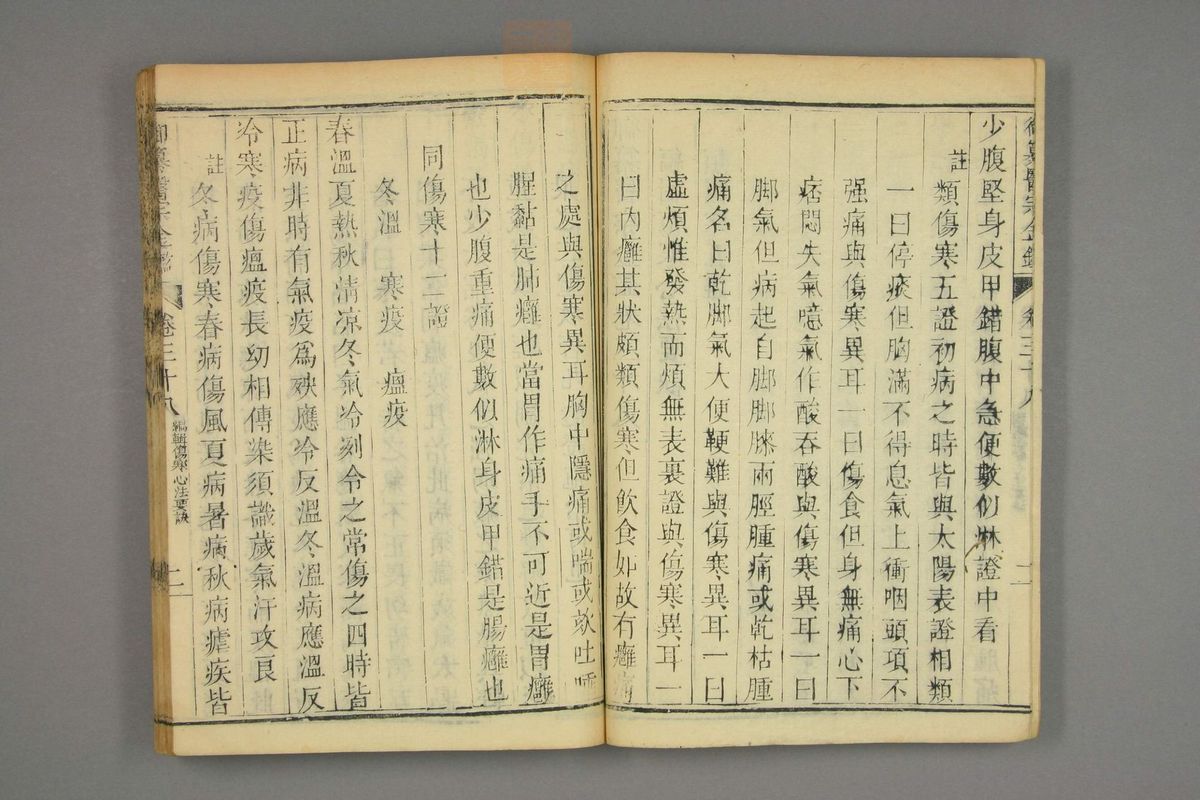 御纂醫宗金鑑 卷三十八 二
少腹堅身皮甲錯腹中急便數似淋證中看
註類傷寒五證初病之時皆與太陽表證相類
一曰停痰但胸滿不得息氣上衝咽頭項不
强痛與傷寒異耳一曰傷食但身無痛心下
痞悶失氣噫氣作酸吞酸與傷寒異耳一曰
脚氣但病起自脚脚膝兩脛腫痛或乾枯腫
痛名曰乾脚氣大便鞕難與傷寒異耳一曰
虛煩惟發熱而煩無表裏證與傷寒異耳一
曰內癰其狀頗類傷寒但飲食如故有癰痛
之處與傷寒異耳胸中隱痛或喘或欬吐唾
腥黏是肺癰也當胃作痛手不可近是胃癰
也少腹重痛便數似淋身皮甲錯是腸癰也
同傷寒十二證
冬溫 寒疫 瘟疫
春溫夏熱秋淸凉冬氣冷冽令之常傷之四時皆
正病非時有氣疫爲殃應冷反溫冬溫病應溫反
冷寒疫傷瘟疫長幼相傳染須識歲氣汗攻良
註冬病傷寒春病傷風夏病暑病秋病瘧疾皆
御纂醫宗金鑑 卷三十八 編輯傷寒心法要訣 二